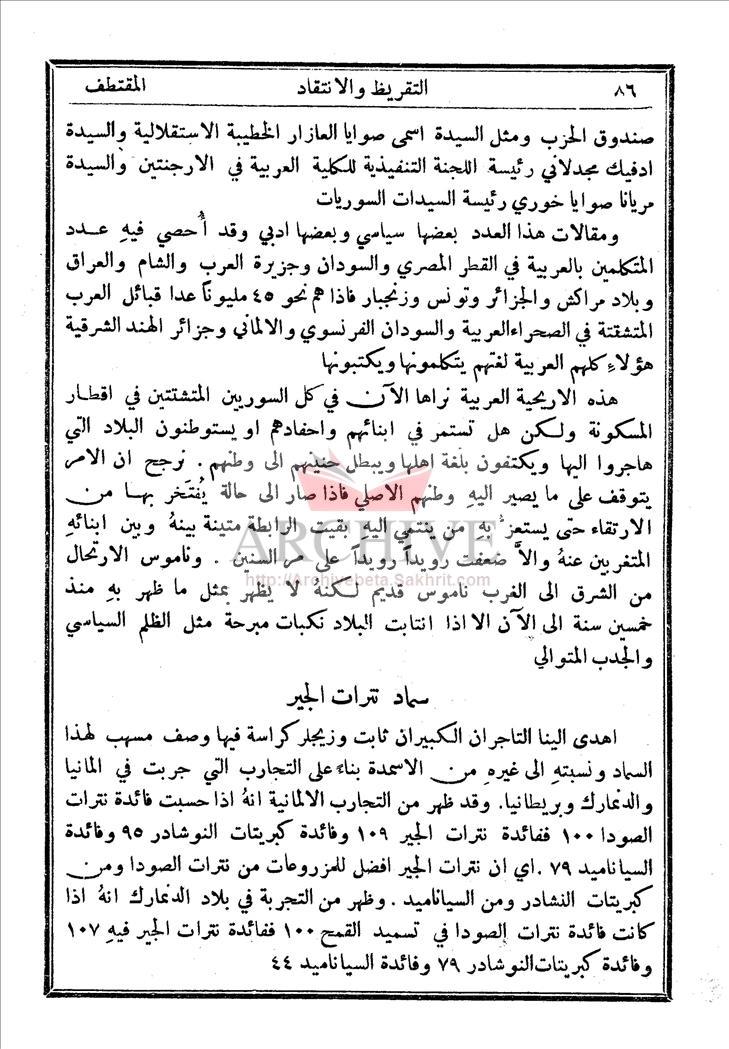 ٨٦ التقريظ والانتقاد المقتطف
صندوق الحزب ومثل السيدة اسمى صوايا العازار الخطيبة الاستقلالية والسيدة
ادفيك مجدلاني رئيسة اللجنة التنفيذية للكلية العربية في الارجنتين والسيدة
مريانا صوايا خوري رئيسة السيدات السوريات
ومقالات هذا العدد بعضها سياسي وبعضها ادبي وقد أُحصي فيهِ عدد
المتكلمين بالعربية في القطر المصري والسودان وجزيرة العرب والشام والعراق
وبلاد مراكش والجزائر وتونس وزنجبار فاذا هم نحو ٤٥ مليوناً عدا قبائل العرب
المتشقتة في الصحراء العربية والسودان الفرنسوي والالماني وجزائر الهند الشرقية
هؤلاءِ كلهم العربية لغتهم يتكلمونها ويكتبونها
هذه الاريحية العربية نراها الآن في كل السوريين المتشتتين في اقطار
المسكونة ولكن هل تستمر في ابنائهم واحفادهم او يستوطنون البلاد التي
هاجروا اليها ويكتفون بلغة اهلها ويبطل حنينهم الى وطنهم . نرجح ان الامر
يتوقف على ما يصير اليهِ وطنهم الاصلي فاذا صار الى حالة يُفتخر بها من
الارتقاء حتى يستعزّ بهِ من ينتمي اليهِ بقيت الرابطة متينة بينهُ وبين ابنائهِ
المتغربين عنهُ والاَّ ضعفت رويداً رويداً على مر السنين . وناموس الارتحال
ARCHIVE
http://Archivebeta.Sakhrit.com
من الشرق الى الغرب ناموس قديم لكنهُ لا يظهر بمثل ما ظهر بهِ منذ
خمسين سنة الى الآن الا اذا انتابت البلاد نكبات مبرحة مثل الظلم السياسي
والجدب المتوالي
سماد نترات الجير
اهدى الينا التاجران الكبيران ثابت وزيجلر كراسة فيها وصف مسهب لهذا
السماد ونسبتهِ الى غيرهِ من الاسمدة بناءً على التجارب التي جربت في المانيا
والدنمارك وبريطانيا. وقد ظهر من التجارب الالمانية انهُ اذا حسبت فائدة نترات
الصودا ١٠٠ ففائدة نترات الجير ١٠٩ وفائدة كبريتات النوشادر ٩٥ وفائدة
السياناميد ٧٩ .اي ان نترات الجير افضل للمزروعات من نترات الصودا ومن
كبريتات النشادر ومن السياناميد . وظهر من التجربة في بلاد الدنمارك انهُ اذا
كانت فائدة نترات الصودا في تسميد القمح ١٠٠ ففائدة نترات الجير فيهِ ١٠٧
وفائدة كبريتات النوشادر ٧٩ وفائدة السياناميد ٤٤